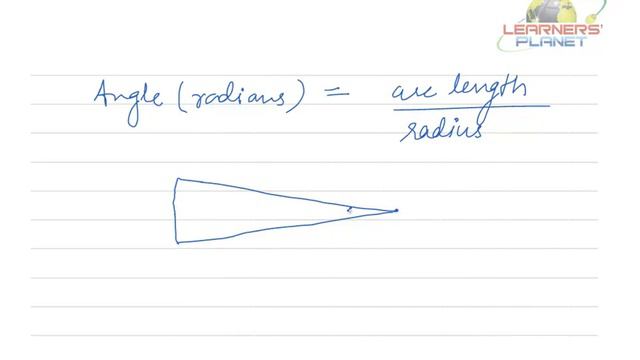 LEARNERS'
PLANET
Angle (radians) = arc length
radius